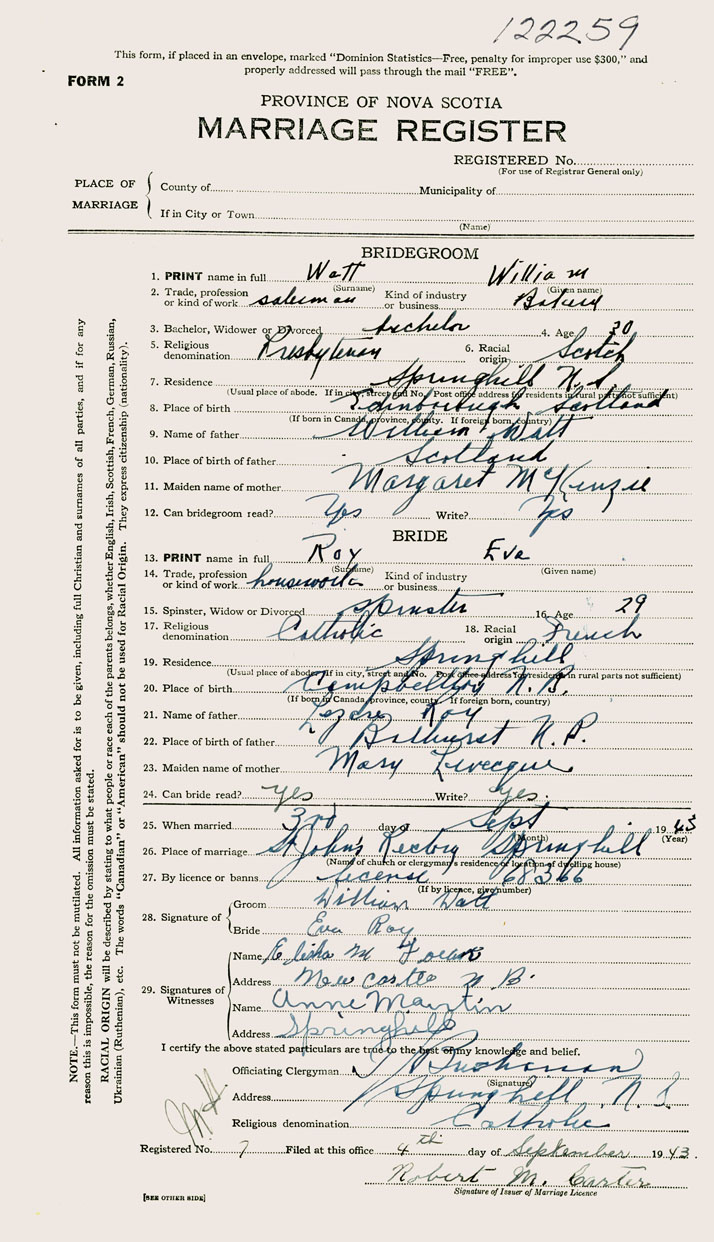 122259
This form, if placed in an envelope, marked "Dominion Statistics—Free, penalty for improper use $300," and
properly addressed will pass through the mail "FREE".
FORM 2
PROVINCE OF NOVA SCOTIA
MARRIAGE REGISTER
REGISTERED No.
(For use of Registrar General only)
PLACE OF MARRIAGE
County of Municipality of
If in City or Town
(Name)
BRIDEGROOM
1. PRINT name in full Watt William
(Surname) (Given name)
2. Trade, profession or kind of work salesman Kind of industry or business
3. Bachelor, Widower or Divorced bachelor 4. Age 30
5. Religious denomination Presbyterian 6. Racial origin Scotch
7. Residence Springhill N.S
(Usual place of abode. If in city, street and No. Post office address for residents in rural parts not sufficient)
8. Place of birth Edinborough Scotland
(If born in Canada, province, county. If foreign born, country)
9. Name of father William Watt
10. Place of birth of father Scotland
11. Maiden name of mother Margaret McKenzie
12. Can bridegroom read? Yes Write? Yes
BRIDE
13. PRINT name in full Roy Eva
(Surname) (Given name)
14. Trade, profession or kind of work houseworker Kind of industry or business
15. Spinster, Widow or Divorced Spinster 16. Age 29
17. Religious denomination Catholic 18. Racial origin French
19. Residence Springhill
(Usual place of abode, if in city, street and No. Post office address for residents in rural parts not sufficient)
20. Place of birth Campbellton N.B.
(If born in Canada, province, county. If foreign born, country)
21. Name of father Roy
22. Place of birth of father Bathurst N.B.
23. Maiden name of mother Mary Levecque
24. Can bride read? Yes Write? Yes.
25. When married 3rd day of Sept 1943
(Month) (Year)
26. Place of marriage St John's Rectory Springhill
(Name of church or clergyman's residence or location of dwelling house)
27. By licence or banns license 68366
(If by licence, give number)
28. Signature of
Groom William Watt
Bride Eva Roy
29. Signatures of Witnesses
Name Elisha M
Address Newcastle N B.
Name Anne Martin
Address Springhill
I certify the above stated particulars are true to the best of my knowledge and belief.
Officiating Clergyman Buchanan
(Signature)
Address Springhill N.S
Religious denomination Catholic
Registered No. 7 Filed at this office 4th day of September 1943.
Robert M. Carter
Signature of Issuer of Marriage Licence
[SEE OTHER SIDE]
NOTE.—This form must not be mutilated. All information asked for is to be given, including full Christian and surnames of all parties, and if for any
reason this is impossible, the reason for the omission must be stated.
RACIAL ORIGIN will be described by stating to what people or race each of the parents belongs, whether English, Irish, Scottish, French, German, Russian,
Ukrainian (Ruthenian), etc. The words "Canadian" or "American" should not be used for Racial Origin. They express citizenship (nationality).